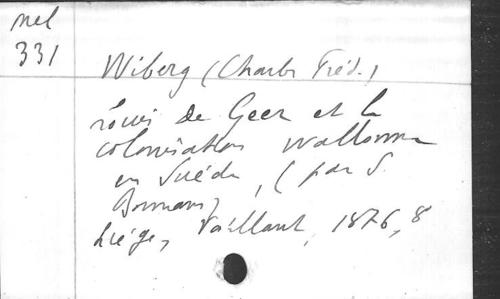 mel
331
Wiberg (Charles Fréd.)
Louis de Geer et la
colonisation wallonne
en Suède, (par S.
Bormans)
Liège, Vaillant, 1876, 8